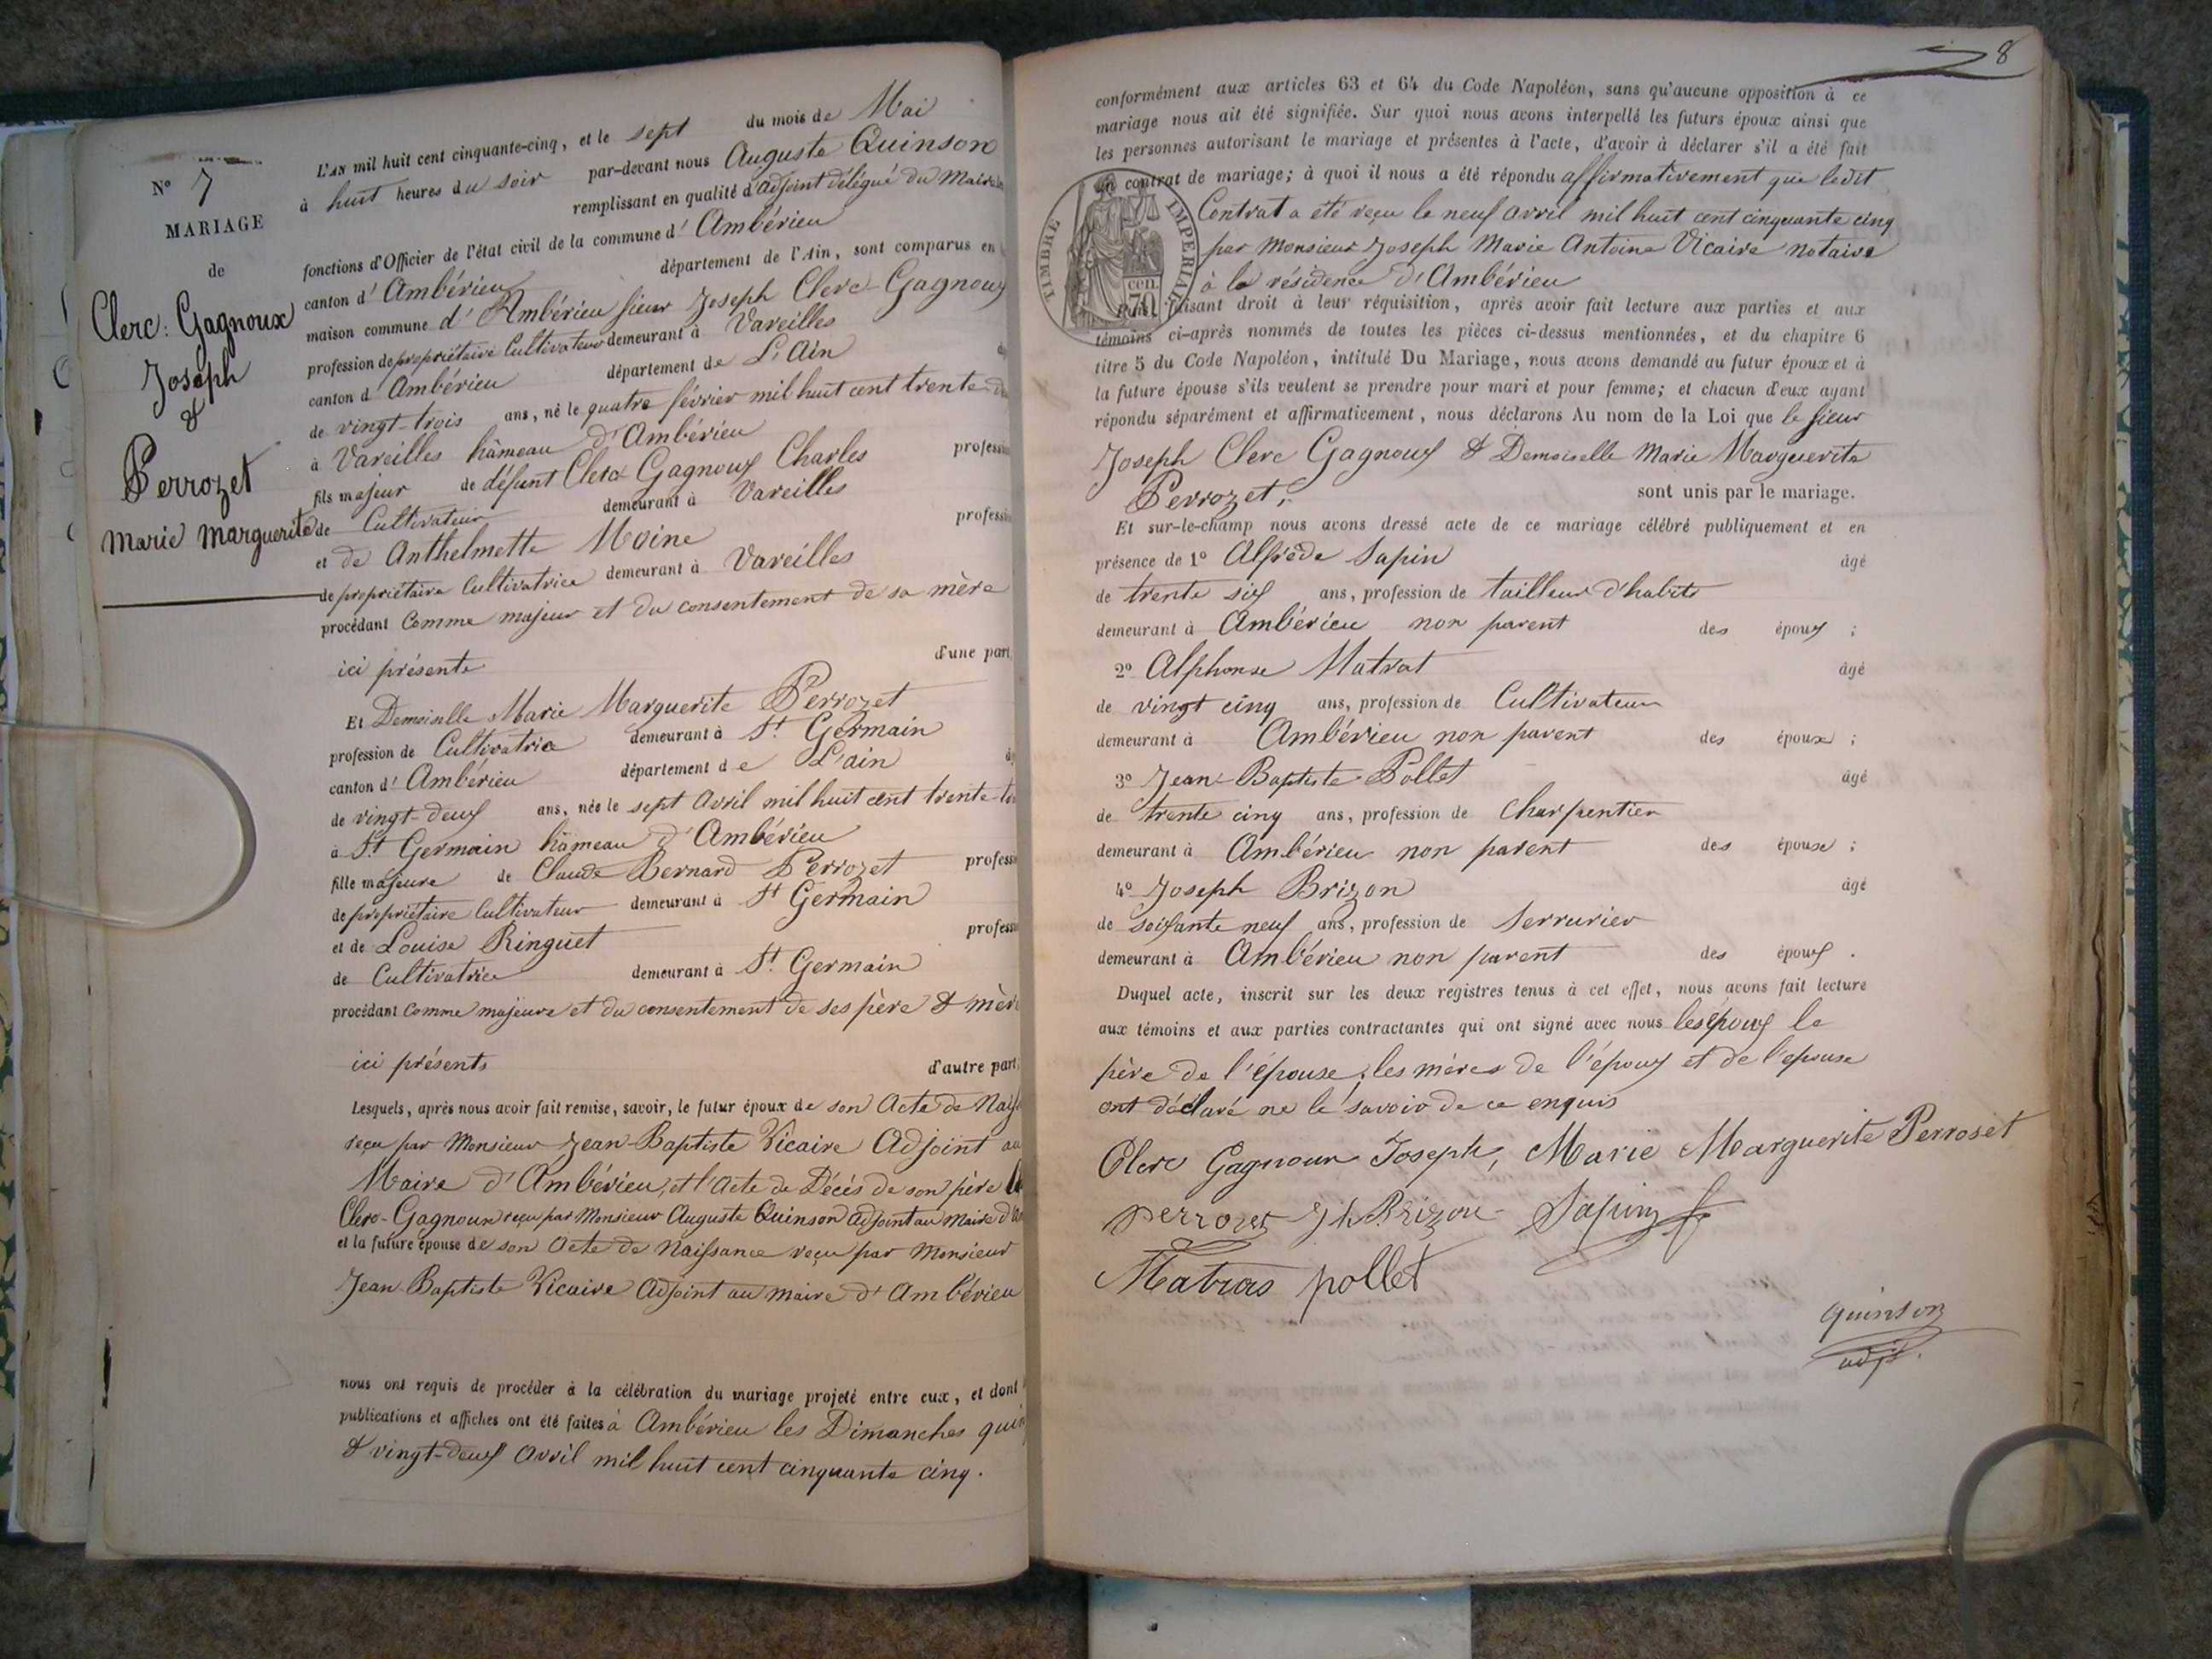 N° 7
MARIAGE
de
Clerc: Gagnoux
Joseph
&
Perrozet
Marie Marguerite
L'AN mil huit cent cinquante-cinq, et le sept du mois de Mai
à huit heures du soir par-devant nous Auguste Quinson
remplissant en qualité d'adjoint délégué du Maire les
fonctions d'Officier de l'état civil de la commune d'Ambérieu
canton d'Ambérieu département de l'Ain, sont comparus en
maison commune d'Ambérieu sieur Joseph Clerc-Gagnoux
profession de propriétaire Cultivateur demeurant à Vareilles
canton d Ambérieu département de L'Ain
de vingt-trois ans, né le quatre février mil huit cent trente
à Vareilles hâmeau d'Ambérieu
fils majeur de défunt Clerc Gagnoux Charles profession
de Cultivateur demeurant à Vareilles
et de Anthelmette Moine profession
de propriétaire Cultivatrice demeurant à Vareilles
procédant Comme majeur et du consentement de sa mère
ici présente d'une part,
Et Demoiselle Marie Marguerite Perrozet
profession de Cultivatrice demeurant à St. Germain
canton d'Ambérieu département de L'ain
de vingt-deux ans, née le sept Avril mil huit cent trente
à St. Germain hâmeau d'Ambérieu
fille majeure de Claude Bernard Perrozet profession
de propriétaire Cultivateur demeurant à St Germain
et de Louise Ringuet profession
de Cultivatrice demeurant à St. Germain
procédant Comme majeure et du consentement de ses père & mère
ici présents d'autre part,
Lesquels, après nous avoir fait remise, savoir, le futur époux de son Acte de Naiss
reçu par Monsieur Jean-Baptiste Vicaire Adjoint au
Maire d'Ambérieu, et l'Acte de Décès de son père
Clerc-Gagnoux reçu par Monsieur Auguste Quinson adjoint au Maire d'
et la future épouse de son Acte de Naissance reçu par Monsieur
Jean-Baptiste Vicaire Adjoint au maire d'Ambérieu
nous ont requis de procéder à la célébration du mariage projeté entre eux, et dont
publications et affiches ont été faites à Ambérieu les Dimanches
& vingt-deux Avril mil huit cent cinquante cinq.
8
conformément aux articles 63 et 64 du Code Napoléon, sans qu'aucune opposition à ce
mariage nous ait été signifiée. Sur quoi nous avons interpellé les futurs époux ainsi que
les personnes autorisant le mariage et présentes à l'acte, d'avoir à déclarer s'il a été fait
un contrat de mariage; à quoi il nous a été répondu affirmativement que ledit
Contrat a été reçu le neuf avril mil huit cent cinquante cinq
par Monsieur Joseph Marie Antoine Vicaire notaire
à la résidence d'Ambérieu
TIMBRE IMPERIAL
70 cen.
Puis, faisant droit à leur réquisition, après avoir fait lecture aux parties et aux
témoins ci-après nommés de toutes les pièces ci-dessus mentionnées, et du chapitre 6
titre 5 du Code Napoléon, intitulé Du Mariage, nous avons demandé au futur époux et à
la future épouse s'ils veulent se prendre pour mari et pour femme; et chacun d'eux ayant
répondu séparément et affirmativement, nous déclarons Au nom de la Loi que le sieur
Joseph Clerc Gagnoux & Demoiselle Marie Marguerite
Perrozet, sont unis par le mariage.
Et sur-le-champ nous avons dressé acte de ce mariage célébré publiquement et en
présence de 1° Alfrède Sapin âgé
de trente six ans, profession de tailleur d'habits
demeurant à Ambérieu non parent des époux ;
2° Alphonse Matrat âgé
de vingt cinq ans, profession de Cultivateur
demeurant à Ambérieu non parent des époux ;
3° Jean-Baptiste Pollet âgé
de trente cinq ans, profession de Charpentier
demeurant à Ambérieu non parent des époux ;
4° Joseph Brizon âgé
de soixante neuf ans, profession de Serrurier
demeurant à Ambérieu non parent des époux .
Duquel acte, inscrit sur les deux registres tenus à cet effet, nous avons fait lecture
aux témoins et aux parties contractantes qui ont signé avec nous les époux le
père de l'épouse, les mères de l'époux et de l'epouse
ont déclaré ne le savoir de ce enquis
Clerc Gagnoux Joseph, Marie Marguerite Perroset
perrozet Jh Brizon Sapin
Matras pollet
quinson
adjt.